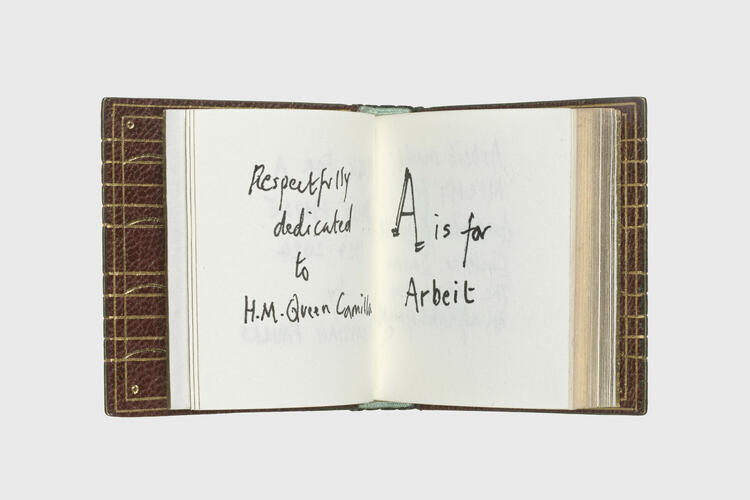 Respectfully
dedicated
to
H.M. Queen Camilla
A is for
Arbeit